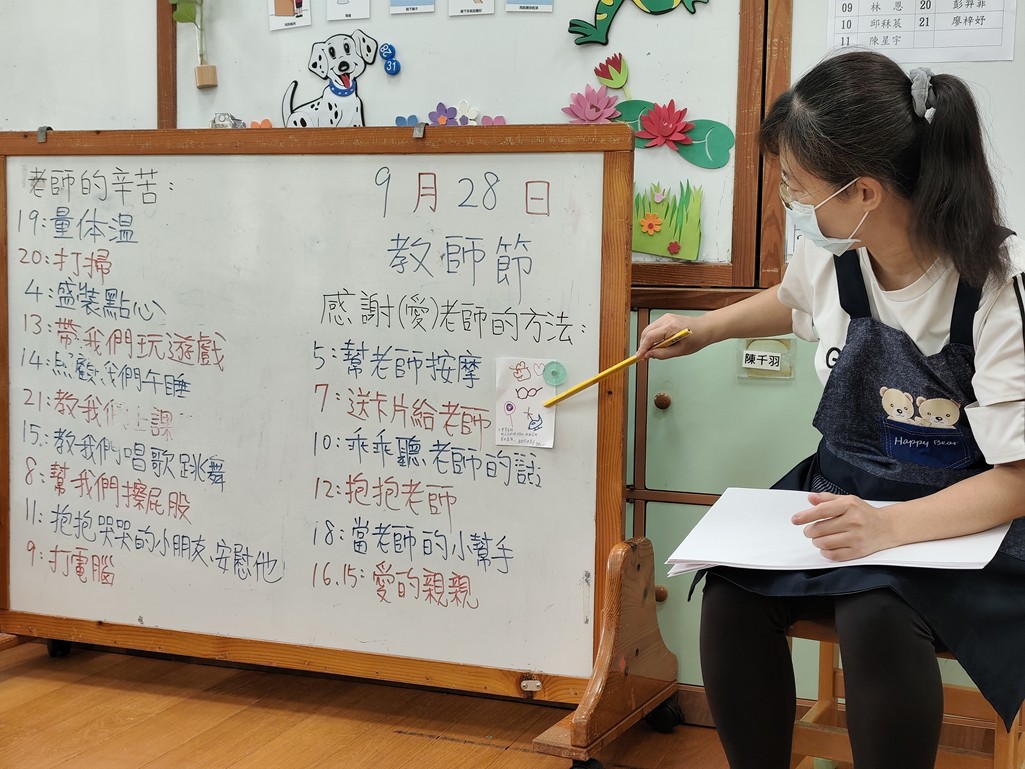 09 林 恩 20 彭羿菲
10 邱秝晨 21 廖梓妤
11 陳星宇
31
老師的辛苦:
19:量体温
20:打掃
4:盛裝點心
13:帶我們玩遊戲
14:点顧我們午睡
21:教我們上課
15:教我們唱歌跳舞
8:幫我們擦屁股
11:抱抱哭哭的小朋友,安慰他
9:打電腦
9月28日
教師節
感謝(愛)老師的方法:
5:幫老師按摩
7:送卡片給老師
10:乖乖聽老師的話
12:抱抱老師
18:當老師的小幫手
16.15:愛的親親
陳千羽
Happy Bear